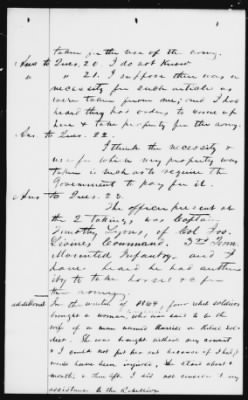 taken for the use of the army.
Ans to Ques. 20. I do not know
" " 21. I suppose there was a
necessity for such articles as
were taken from me; and I has
heard they had orders to come up
here & take property for the army.
Ans. to Ques. 22.
I think the necessity &
use for which my property was
taken is such as to require the
Government to pay for it.
Ans to Ques. 23.
The officer present at
the 2 takings, was Capt.
Timothy Lyons, of Col Jos.
Command. 3rd Tenn
Mounted Infantry. and I
have heard he had author
ity to take horses &c for
army
additional In the winter of 1864, four rebel soldiers
brought a woman, who was said to be the
wife of a man named Harris a Rebel sol-
dier. She was brought without my consent
& I could not put her out because if I had I
would have been injured. She staid about 2
months & then left. I did not consider it any
assistance to the Rebellion